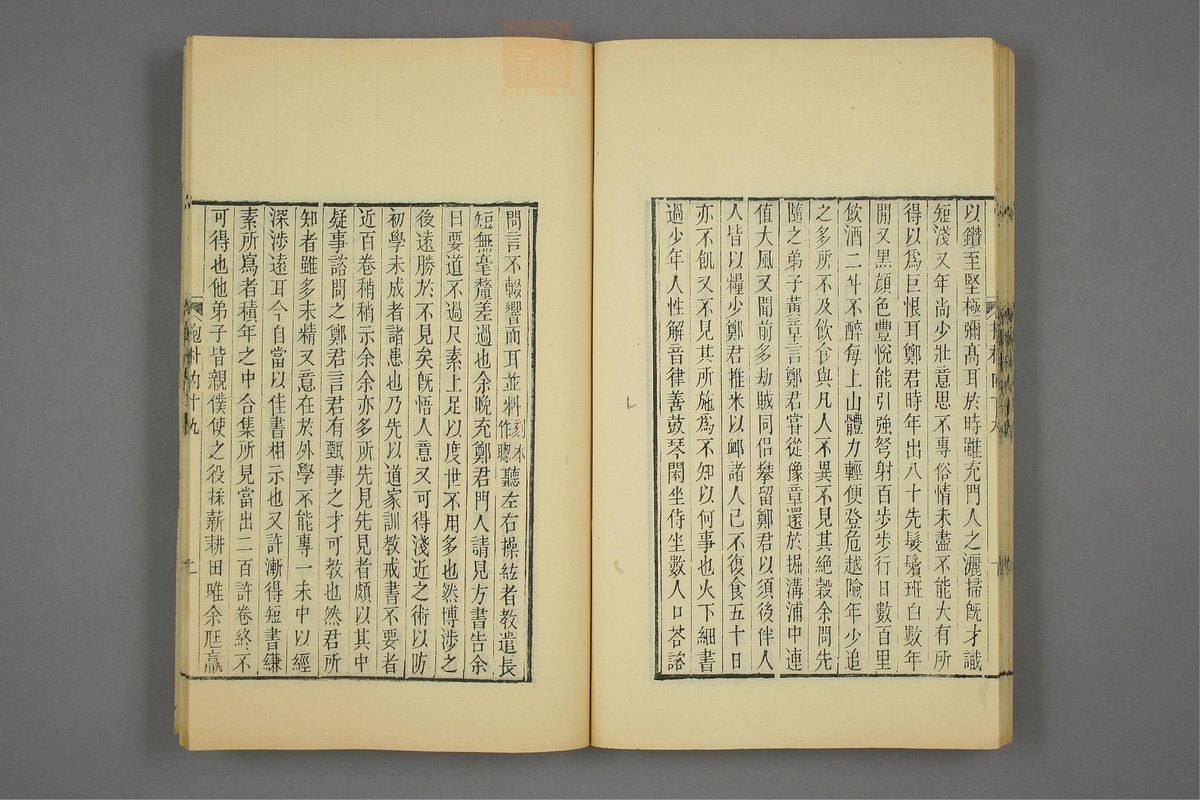 以鑽至堅極彌髙耳於時雖充門人之灑掃旣才識
短淺又年尚少壯意思不專俗情未盡不能大有所
得以爲巨恨耳鄭君時年出八十先髮鬢班白數年
閒又黑顏色豐悅能引強弩射百步步行日數百里
飲酒二斗不醉每上山體力輕便登危越險年少追
之多所不及飲食與凡人不異不見其絕穀余問先
隨之弟子黃章言鄭君嘗從豫章還於掘溝浦中連
值大風又聞前多劫賊同侶攀留鄭君以須後伴人
人皆以糧少鄭君推米以䘏諸人己不復食五十日
亦不飢又不見其所施爲不知以何事也火下細書
過少年人性解音律善鼓琴閑坐侍坐數人口荅諮
問言不輟響而耳並料刻本作聰聽左右操絃者教遣長
短無毫釐差過也余晚充鄭君門人請見方書告余
曰要道不過尺素上足以度世不用多也然博涉之
後遠勝於不見矣旣悟人意又可得淺近之術以防
初學未成者諸患也乃先以道家訓教戒書不要者
近百卷稍稍示余余亦多所先見先見者頗以其中
疑事諮問之鄭君言君有甄事之才可教也然君所
知者雖多未精又意在於外學不能專一未中以經
深涉遠耳今自當以佳書相示也又許漸得短書縑
素所寫者積年之中合集所見當出二百許卷終不
可得也他弟子皆親僕使之役採薪耕田唯余尫羸
抱朴內十九